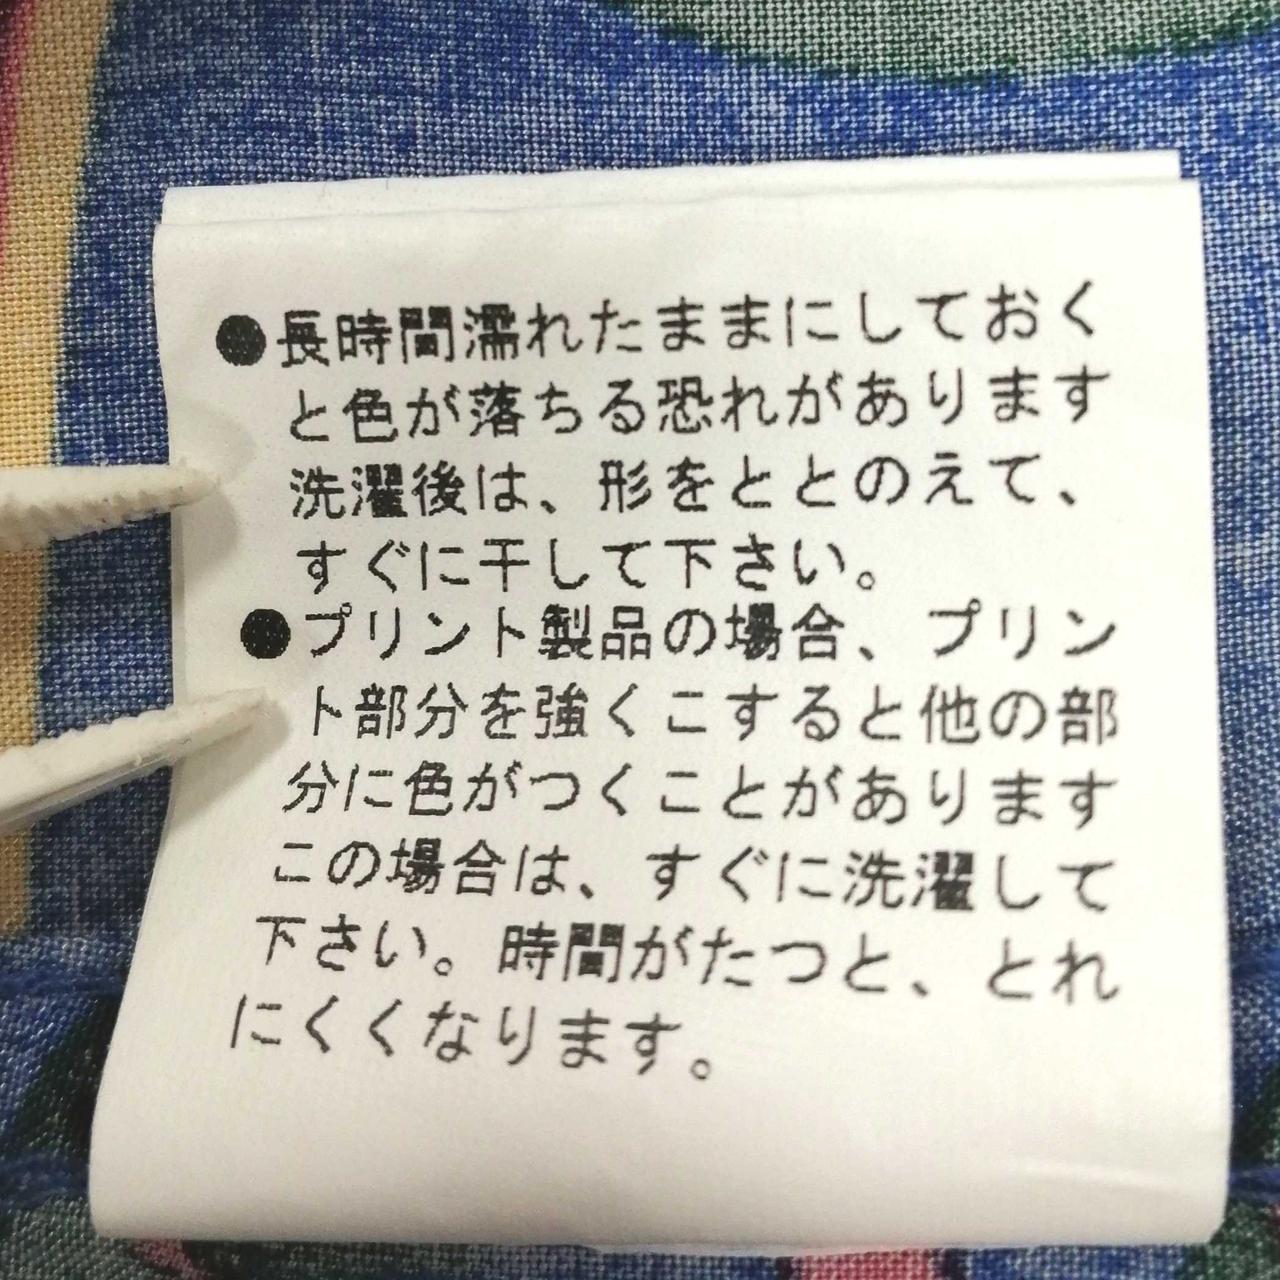 ●長時間濡れたままにしておく
と色が落ちる恐れがあります
洗濯後は、形をととのえて、
すぐに干して下さい。
●プリント製品の場合、プリン
ト部分を強くこすると他の部
分に色がつくことがあります
この場合は、すぐに洗濯して
下さい。時間がたつと、とれ
にくくなります。